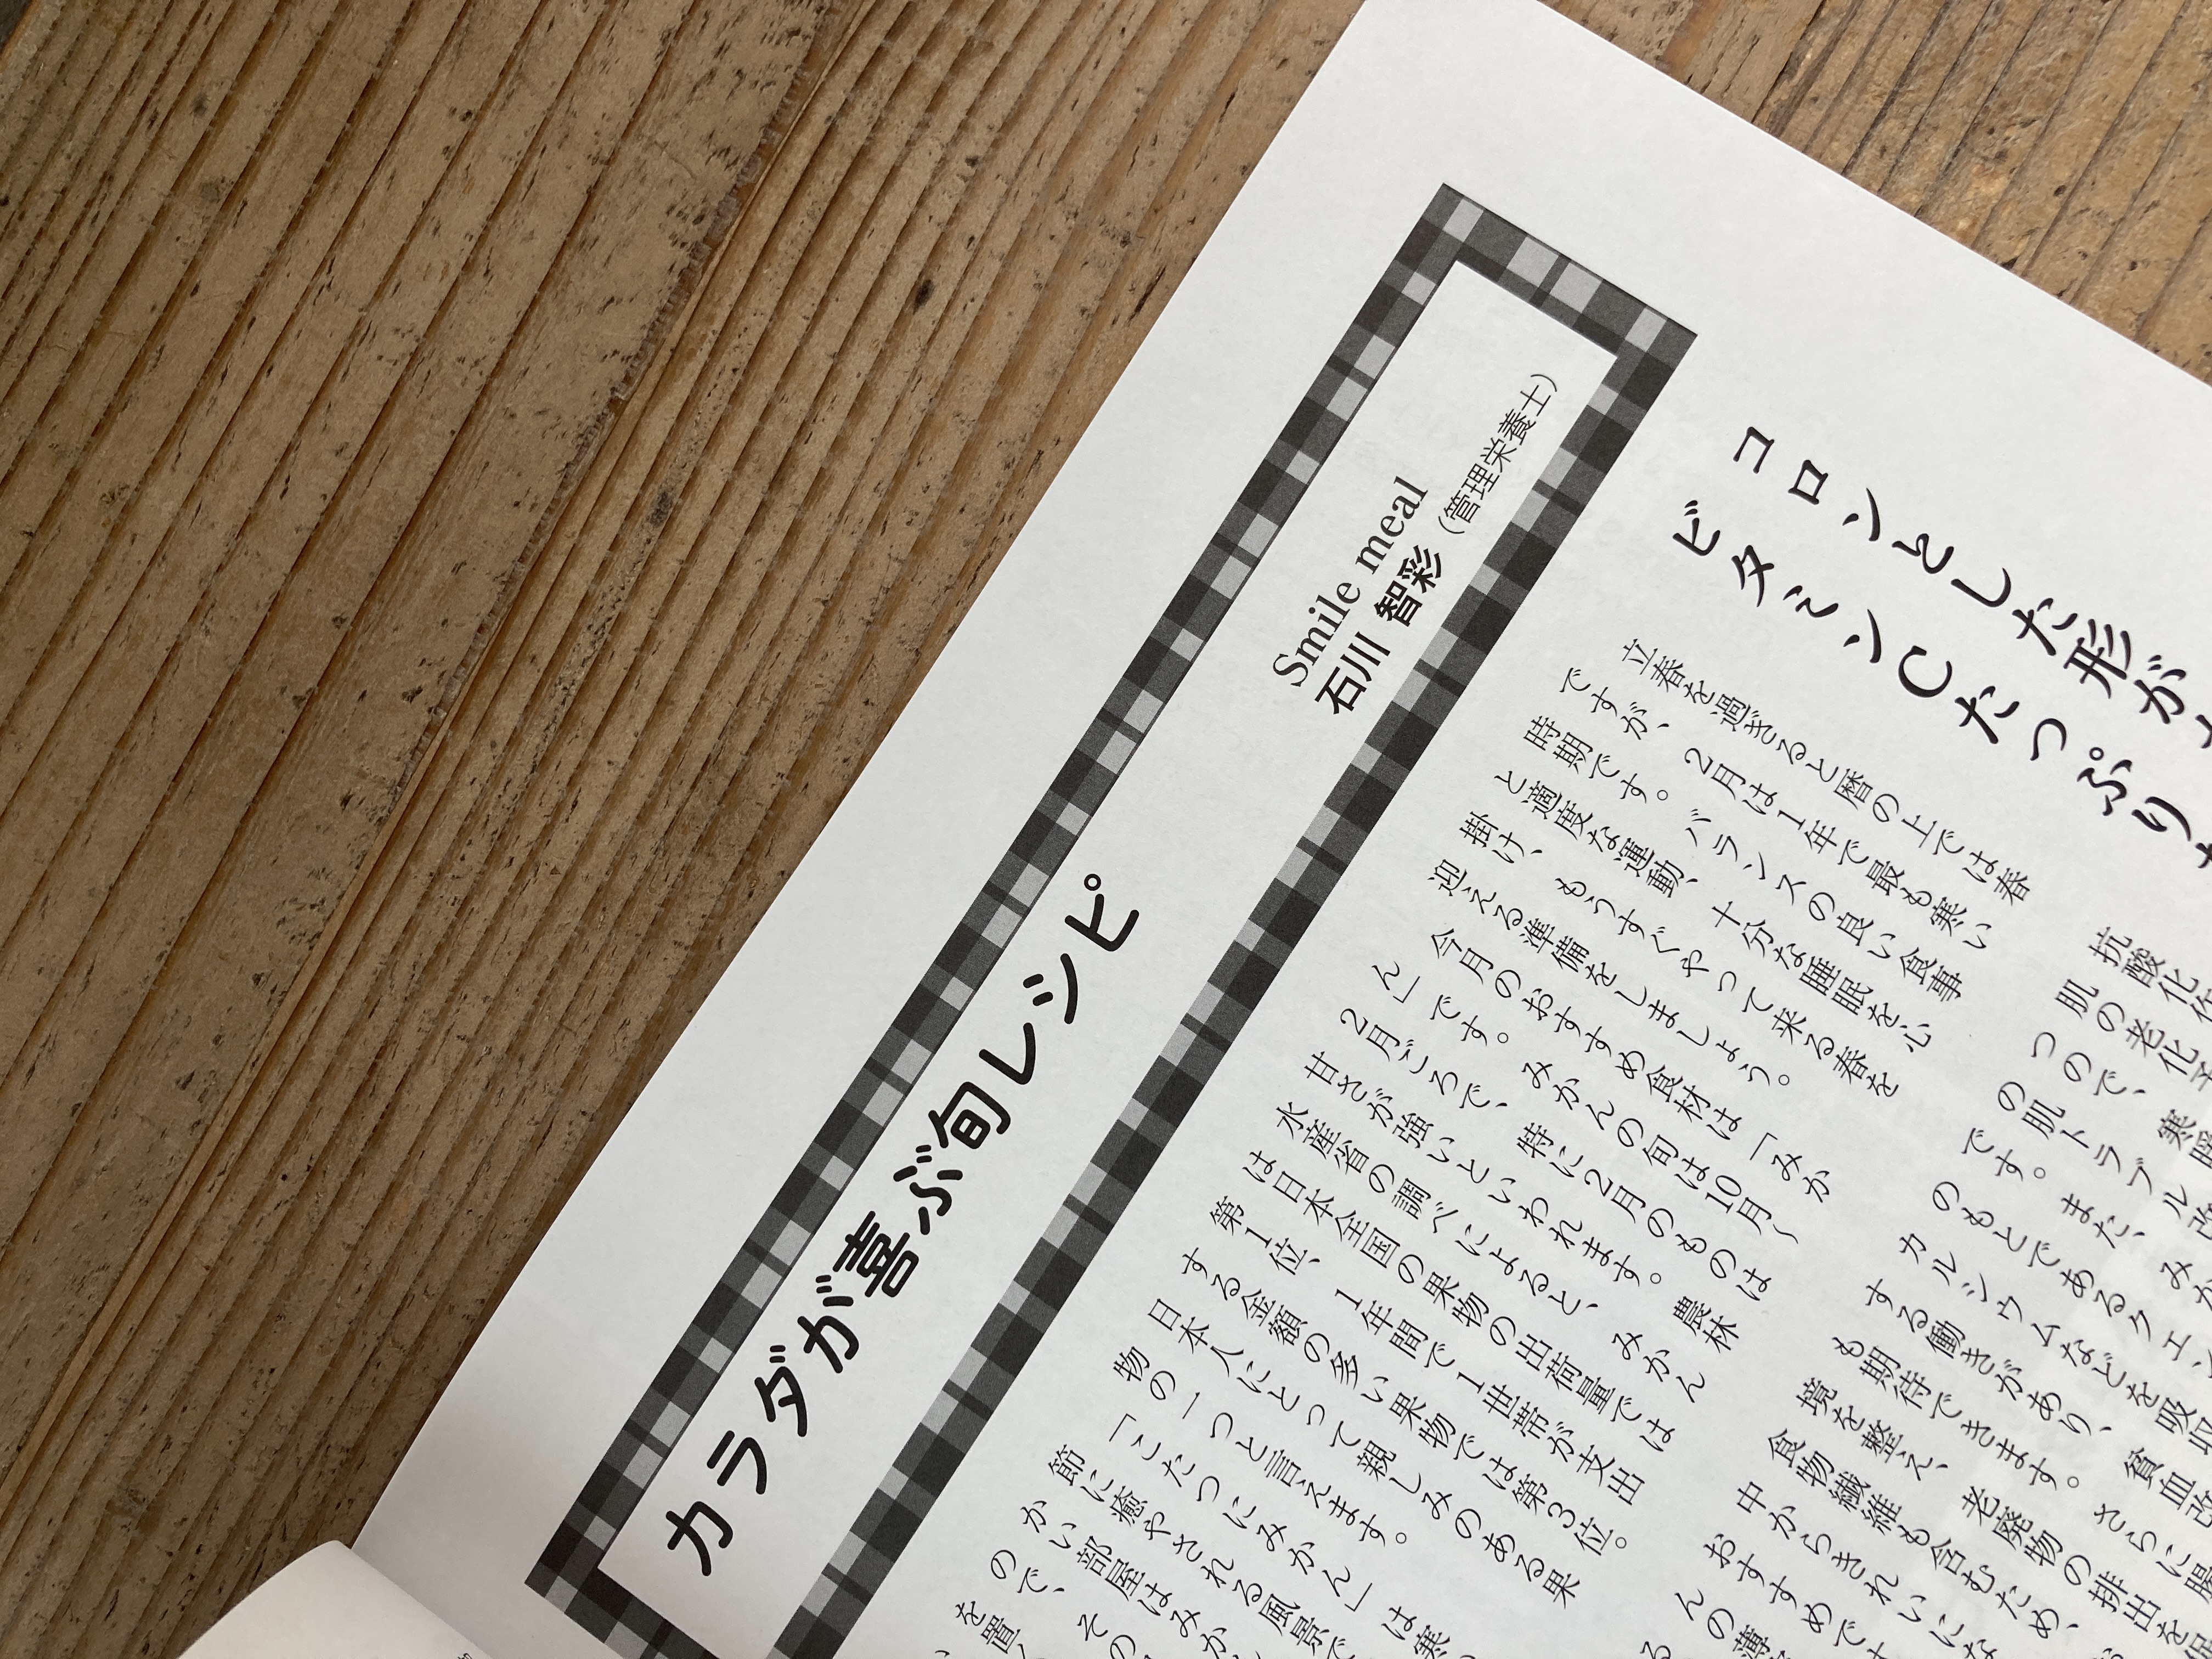 カラダが喜ぶ旬レシピ
Smile meal
石川 智彩（管理栄養士）
コロンとした形が
ビタミンCたっぷり
立春を過ぎると暦の上では春
ですが、2月は1年で最も寒い
時期です。バランスの良い食事
と適度な運動、十分な睡眠を心
掛け、もうすぐやって来る春を
迎える準備をしましょう。
今月のおすすめ食材は「みか
ん」です。みかんの旬は10月～
2月ごろで、特に2月のものは
甘さが強いといわれます。農林
水産省の調べによると、みかん
は日本全国の果物の出荷量では
第1位、1年間で1世帯が支出
する金額の多い果物では第3位。
日本人にとって親しみのある果
物の一つと言えます。
「こたつにみかん」は寒
節に癒やされる風景で
かい部屋はみか
ので、その
を置
抗酸化作
肌の老化予
つので、寒暖
の肌トラブル改
です。また、みか
のもとであるクエン
カルシウムなどを吸収
する働きがあり、貧血改
も期待できます。さらに腸
境を整え、老廃物の排出を促
食物繊維も含むため、お
中からきれいにな
おすすめです
んの薄
る